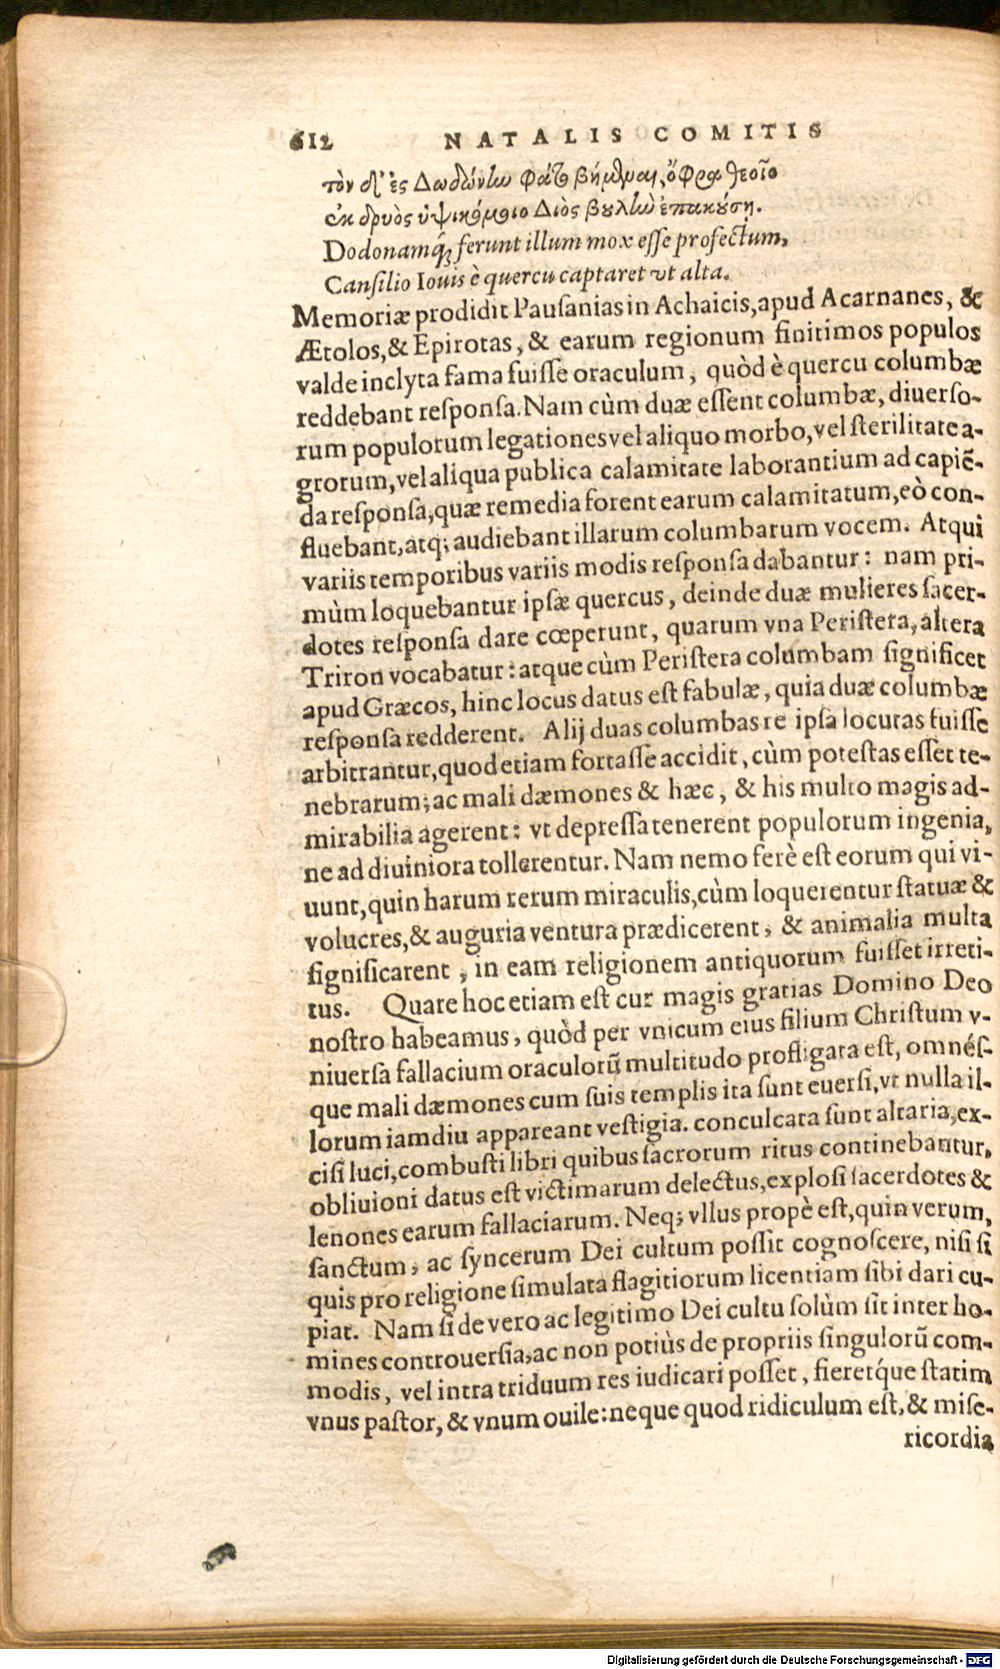 612 NATALIS COMITIS
τὸν δ' ἐς Δωδώνἰω φάτο βήμεναι, ὄφρα θεοῖο
ἐκ δρυὸς ὑψικόμοιο Διὸς βουλἰὼ ἐπακούσῃ.
Dodonamq́; ferunt illum mox eſſe profectum,
Canſilio Iouis è quercu captaret vt alta.
Memoriæ prodidit Pauſanias in Achaicis, apud Acarnanes, &
Ætolos, & Epirotas, & earum regionum finitimos populos
valde inclyta fama fuiſſe oraculum, quòd è quercu columbæ
reddebant reſponſa. Nam cùm duæ eſſent columbæ, diuerſo-
rum populorum legationes vel aliquo morbo, vel ſterilitate a-
grorum, vel aliqua publica calamitate laborantium ad capiē-
da reſponſa, quæ remedia forent earum calamitatum, eò con-
fluebant, atq; audiebant illarum columbarum vocem. Atqui
variis temporibus variis modis reſponſa dabantur: nam pri-
mùm loquebantur ipſæ quercus, deinde duæ mulieres ſacer-
dotes reſponſa dare cœperunt, quarum vna Periſtera, altera
Triron vocabatur: atque cùm Periſtera columbam ſignificet
apud Græcos, hinc locus datus eſt fabulæ, quia duæ columbæ
reſponſa redderent. Alij duas columbas re ipſa locutas fuiſſe
arbitrantur, quod etiam fortaſſe accidit, cùm poteſtas eſſet te-
nebrarum; ac mali dæmones & hæc, & his multo magis ad-
mirabilia agerent: vt depreſſa tenerent populorum ingenia,
ne ad diuiniora tollerentur. Nam nemo ferè eſt eorum qui vi-
uunt, quin harum rerum miraculis, cùm loquerentur ſtatuæ &
volucres, & auguria ventura prædicerent, & animalia multa
ſignificarent, in eam religionem antiquorum fuiſſet irreti-
tus. Quare hoc etiam eſt cur magis gratias Domino Deo
noſtro habeamus, quòd per vnicum eius filium Chriſtum v-
niuerſa fallacium oraculorū multitudo profligata eſt, omnéſ-
que mali dæmones cum ſuis templis ita ſunt euerſi, vt nulla il-
lorum iamdiu appareant veſtigia. conculcata ſunt altaria, ex-
ciſi luci, combuſti libri quibus ſacrorum ritus continebantur,
obliuioni datus eſt victimarum delectus, exploſi ſacerdotes &
lenones earum fallaciarum. Neq; vllus propè eſt, quin verum,
ſanctum, ac ſyncerum Dei cultum poſſit cognoſcere, niſi ſi
quis pro religione ſimulata flagitiorum licentiam ſibi dari cu-
piat. Nam ſi de vero ac legitimo Dei cultu ſolùm ſit inter ho-
mines controuerſia, ac non potiùs de propriis ſingulorū com-
modis, vel intra triduum res iudicari poſſet, fieretq́ue ſtatim
vnus paſtor, & vnum ouile: neque quod ridiculum eſt, & miſe-
ricordia
Digitalisierung gefördert durch die Deutsche Forschungsgemeinschaft - DFG